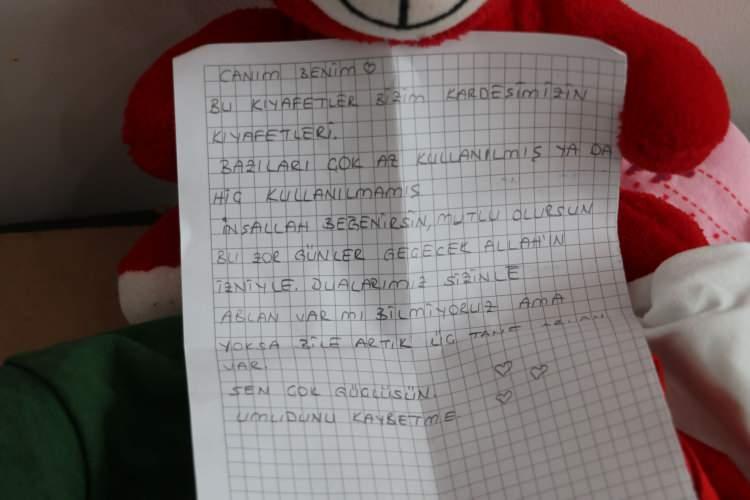 CANIM BENİM ♡
BU KIYAFETLER BİZİM KARDEŞİMİZİN
KIYAFETLERİ.
BAZILARI ÇOK AZ KULLANILMIŞ YA DA
HİÇ KULLANILMAMIŞ
İNŞALLAH BEĞENİRSİN, MUTLU OLURSUN
BU ZOR GÜNLER GEÇECEK ALLAH'IN
İZNİYLE. DUALARIMIZ SİZİNLE
ABLAN VAR MI BİLMİYORUZ AMA
YOKSA BİLE ARTIK ÜÇ TANE
VAR.
SEN ÇOK GÜÇLÜSÜN.
UMUDUNU KAYBETME